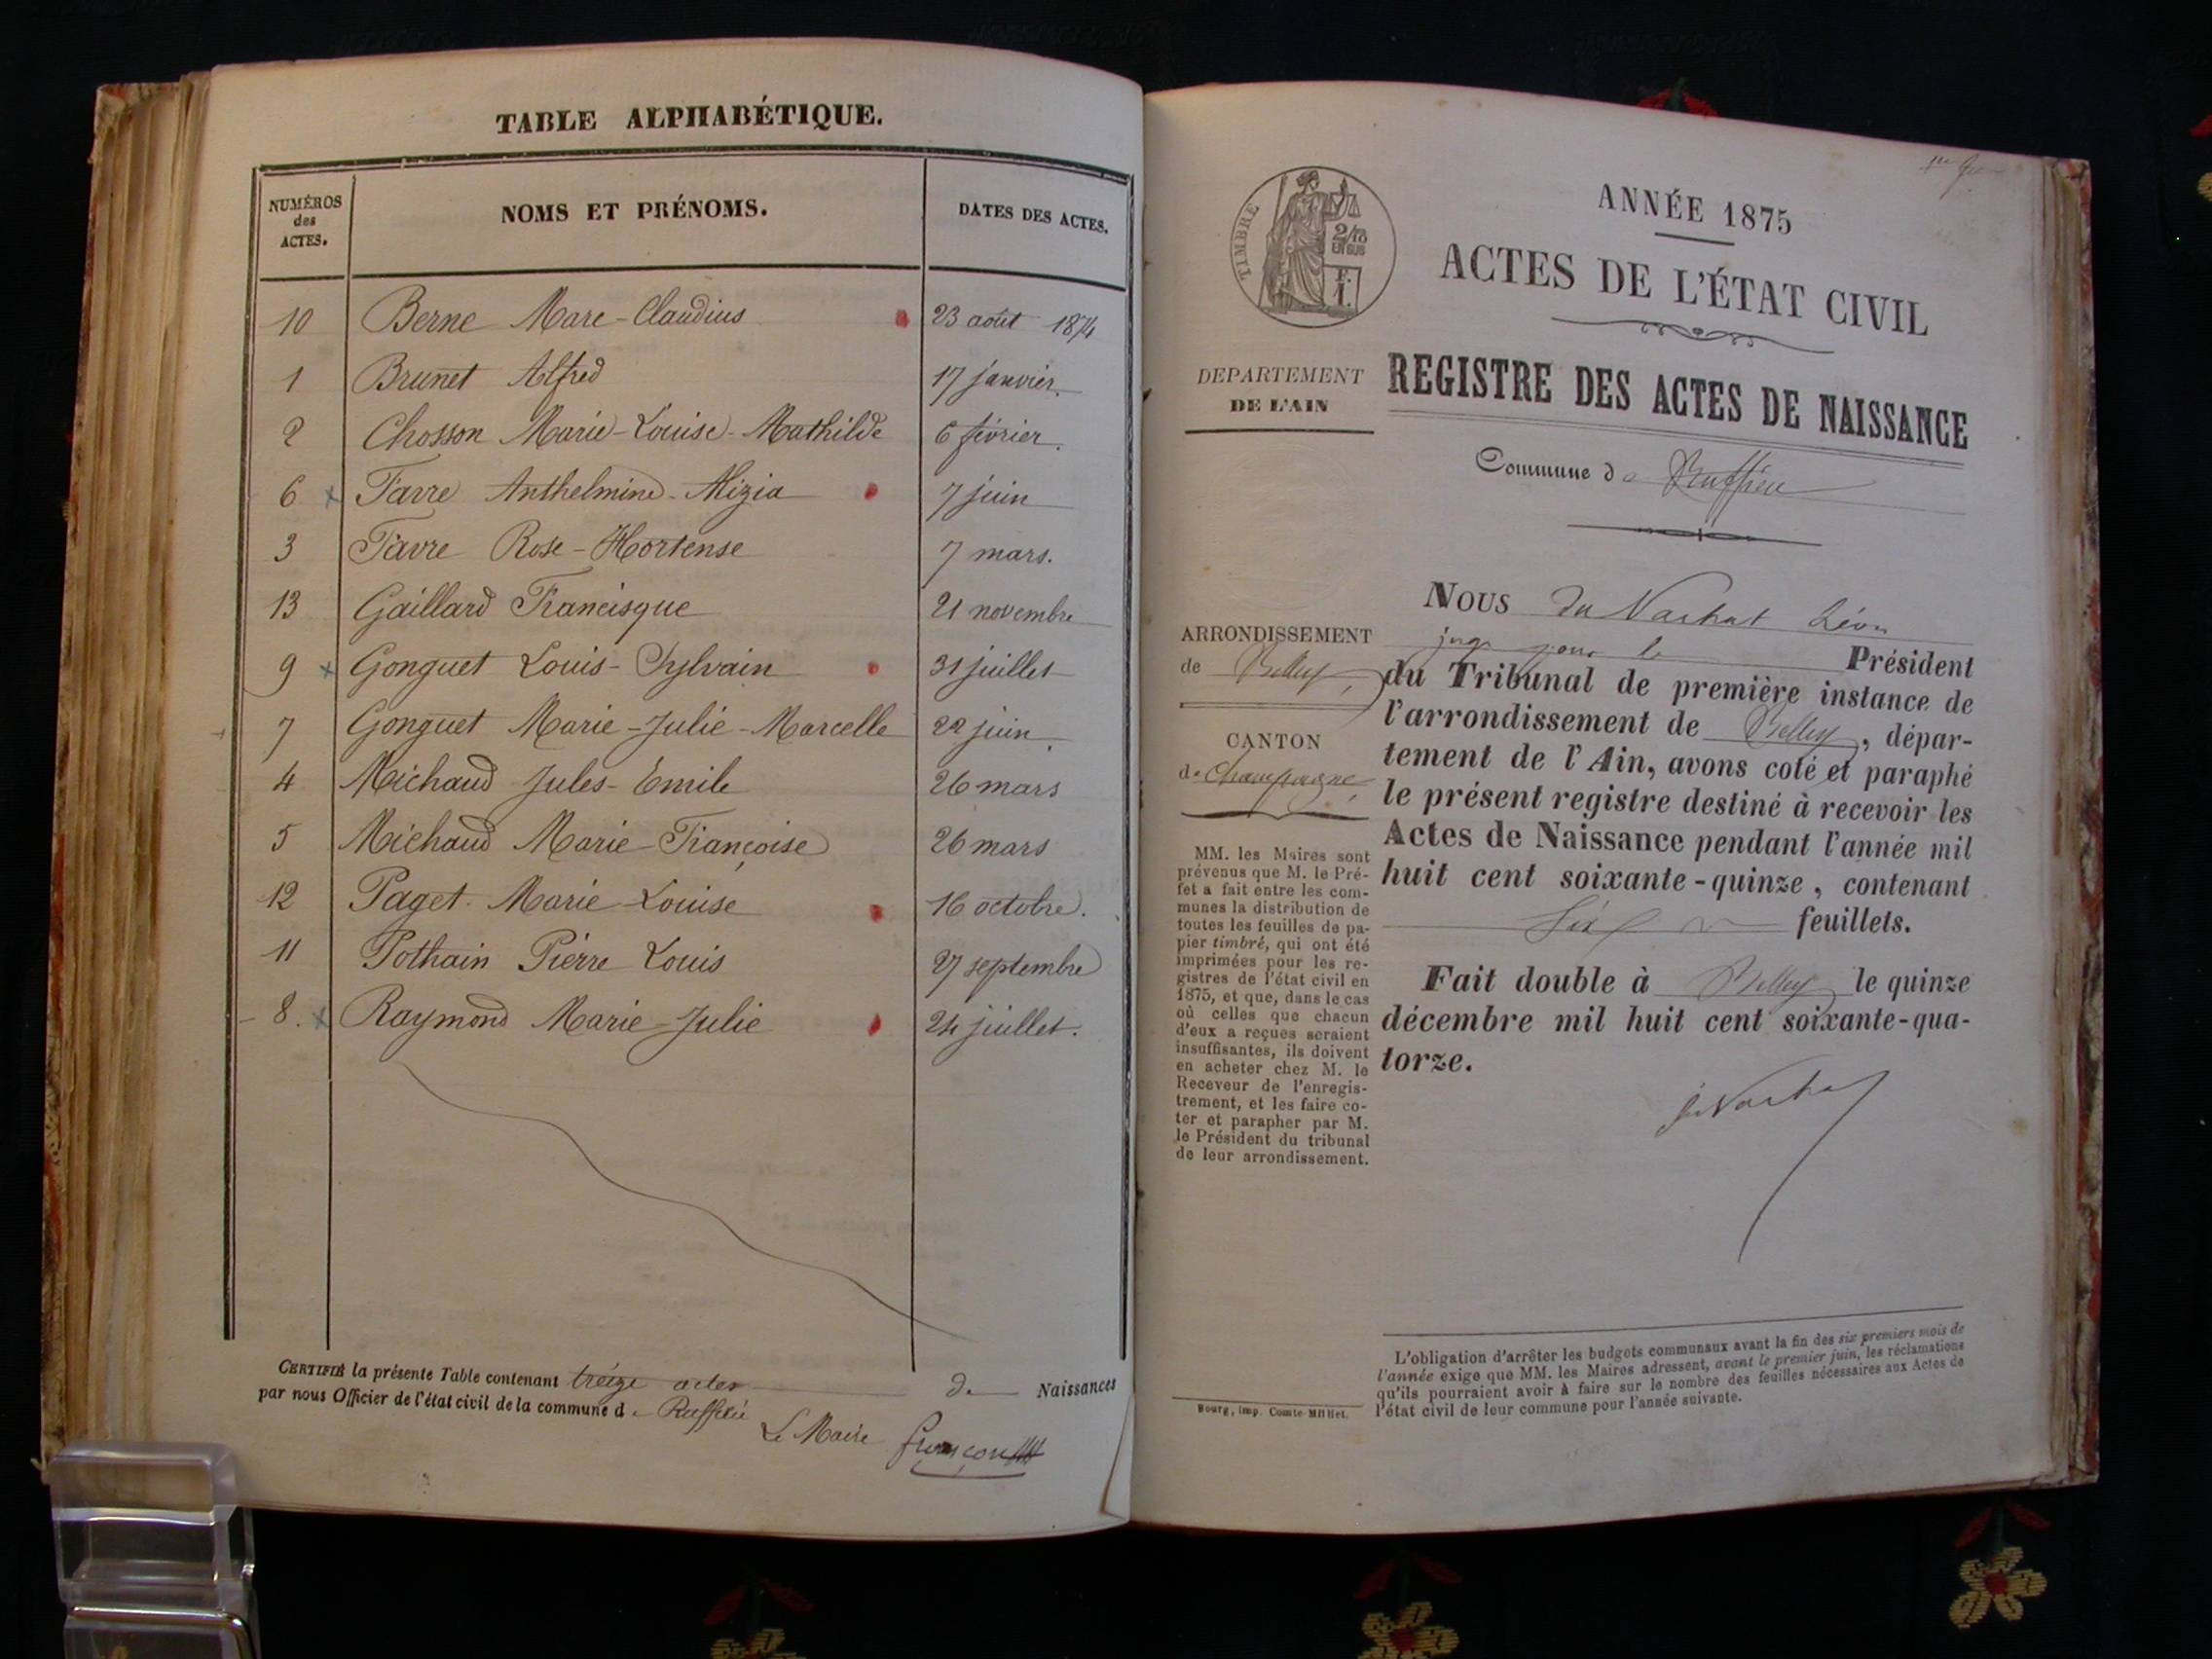 TABLE ALPHABÉTIQUE.
NUMÉROS des ACTES.
NOMS ET PRÉNOMS.
DATES DES ACTES.
10 Berne Marc-Claudius 23 août 1874
1 Brunet Alfred 17 janvier.
2 Chosson Marie-Louise-Mathilde 6 février.
6 Favre Anthelmine-Alizia 7 juin
3 Favre Rose-Hortense 7 mars.
13 Gaillard Francisque 21 novembre
9 Gonguet Louis-Sylvain 31 juillet
7 Gonguet Marie-Julie-Marcelle 22 juin.
4 Michaud Jules-Emile 26 mars
5 Michaud Marie-Françoise 26 mars
12 Paget Marie-Louise 16 octobre.
11 Pothain Pierre Louis 27 septembre
8. Raymond Marie-Julie 24 juillet.
CERTIFIÉ la présente Table contenant treize actes de Naissances
par nous Officier de l'état civil de la commune de Ruffieu
Le Maire
ANNÉE 1875
ACTES DE L'ÉTAT CIVIL
REGISTRE DES ACTES DE NAISSANCE
Commune de Ruffieu
TIMBRE
2/10
EN SUS
DEPARTEMENT
DE L'AIN
ARRONDISSEMENT
de Belley,
CANTON
de Champagne,
MM. les Maires sont
prévenus que M. le Pré-
fet a fait entre les com-
munes la distribution de
toutes les feuilles de pa-
pier timbré, qui ont été
imprimées pour les re-
gistres de l'état civil en
1875, et que, dans le cas
où celles que chacun
d'eux a reçues seraient
insuffisantes, ils doivent
en acheter chez M. le
Receveur de l'enregis-
trement, et les faire co-
ter et parapher par M.
le Président du tribunal
de leur arrondissement.
Bourg, imp. Comte-Milliet.
NOUS du Nachat Léon
juge pour le Président
du Tribunal de première instance de
l'arrondissement de Belley, dépar-
tement de l'Ain, avons coté et paraphé
le présent registre destiné à recevoir les
Actes de Naissance pendant l'année mil
huit cent soixante-quinze, contenant
Six feuillets.
Fait double à Belley le quinze
décembre mil huit cent soixante-qua-
torze.
L'obligation d'arrêter les budgets communaux avant la fin des six premiers mois de
l'année exige que MM. les Maires adressent, avant le premier juin, les réclamations
qu'ils pourraient avoir à faire sur le nombre des feuilles nécessaires aux Actes de
l'état civil de leur commune pour l'année suivante.